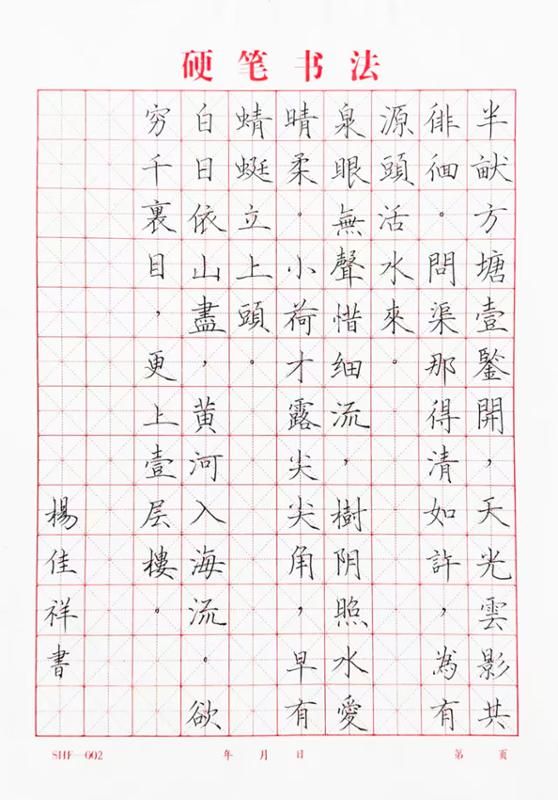 硬笔书法
半畝方塘壹鑒開，天光雲影共
徘徊。問渠那得清如許，為有
源頭活水來。
泉眼無聲惜细流，樹阴照水愛
晴柔。小荷才露尖尖角，早有
蜻蜓立上頭。
白日依山盡，黄河入海流。欲
穷千裏目，更上壹层樓。
楊佳祥書
SHF—002 年 月 日 第 页